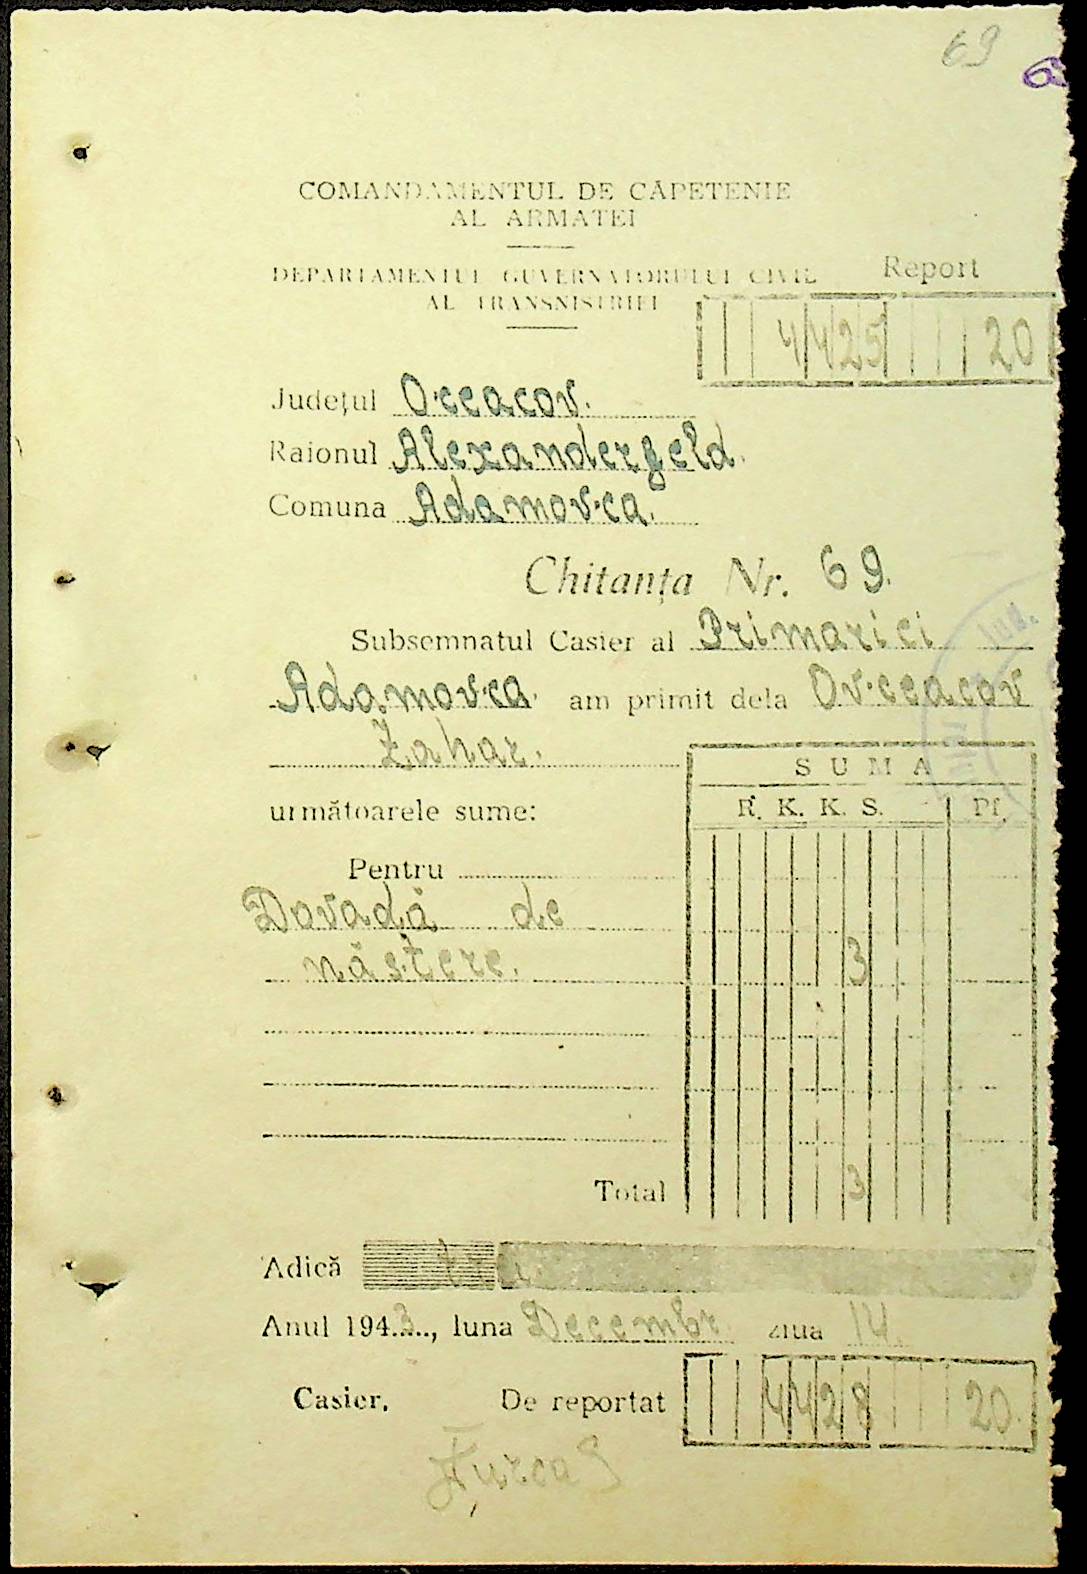 69
COMANDAMENTUL DE CĂPETENIE
AL ARMATEI
DEPARTAMENTUL GUVERNATORULUI CIVIL
AL TRANSNISTRIEI
Report
4425 20
Județul Occeacov.
Raionul Alexandergeld.
Comuna Adamovca.
Chitanța Nr. 69.
Subsemnatul Casier al Primariei
Adamovca. am primit dela Ovcceacov
Zahar.
SUMA
R. K. K. S. Pf.
următoarele sume:
Pentru
Dovadă de
năstere. 3
Total 3
Adică trei
Anul 1943..., luna Decembr. ziua 14.
Casier, De reportat 4428 20.